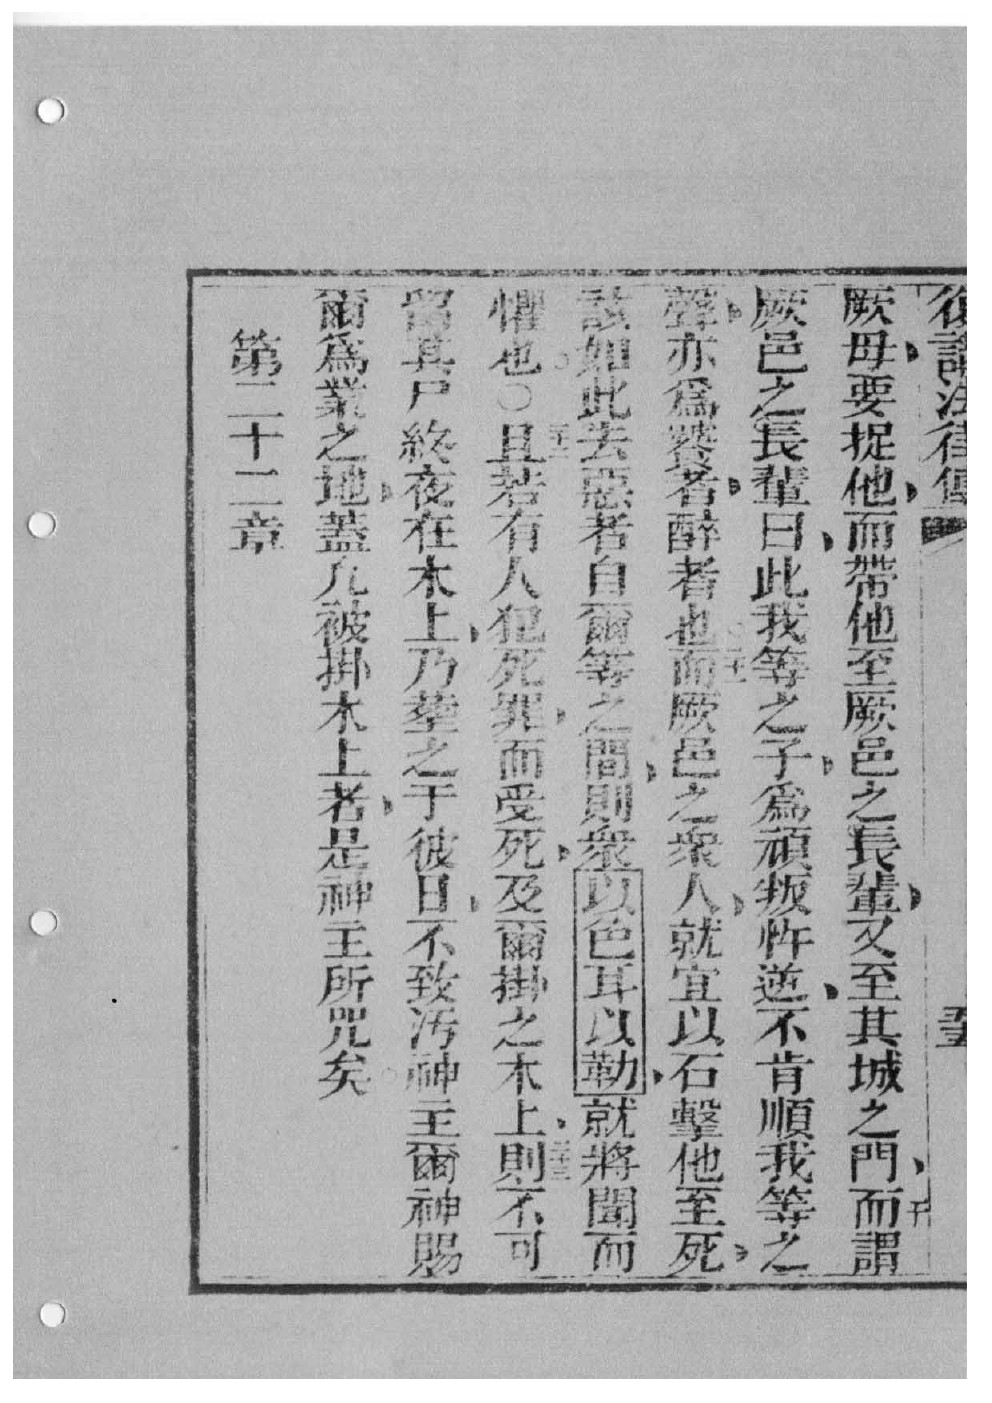 復講法律傳
厥母要捉他而帶他至厥邑之長輩又至其城之門而謂
厥邑之長輩曰此我等之子為頑叛忤逆不肯順我等之
聲亦為饕者醉者也而厥邑之衆人就宜以石擊他至死
該如此去惡者自爾等之間則衆以色耳以勒就將聞而
懼也〇且若有人犯死罪而受死及爾掛之木上則不可
留其尸終夜在木上乃塟之于彼日不致汚神主爾神賜
爾爲業之地蓋凢被掛木上者是神主所咒矣
第二十二章